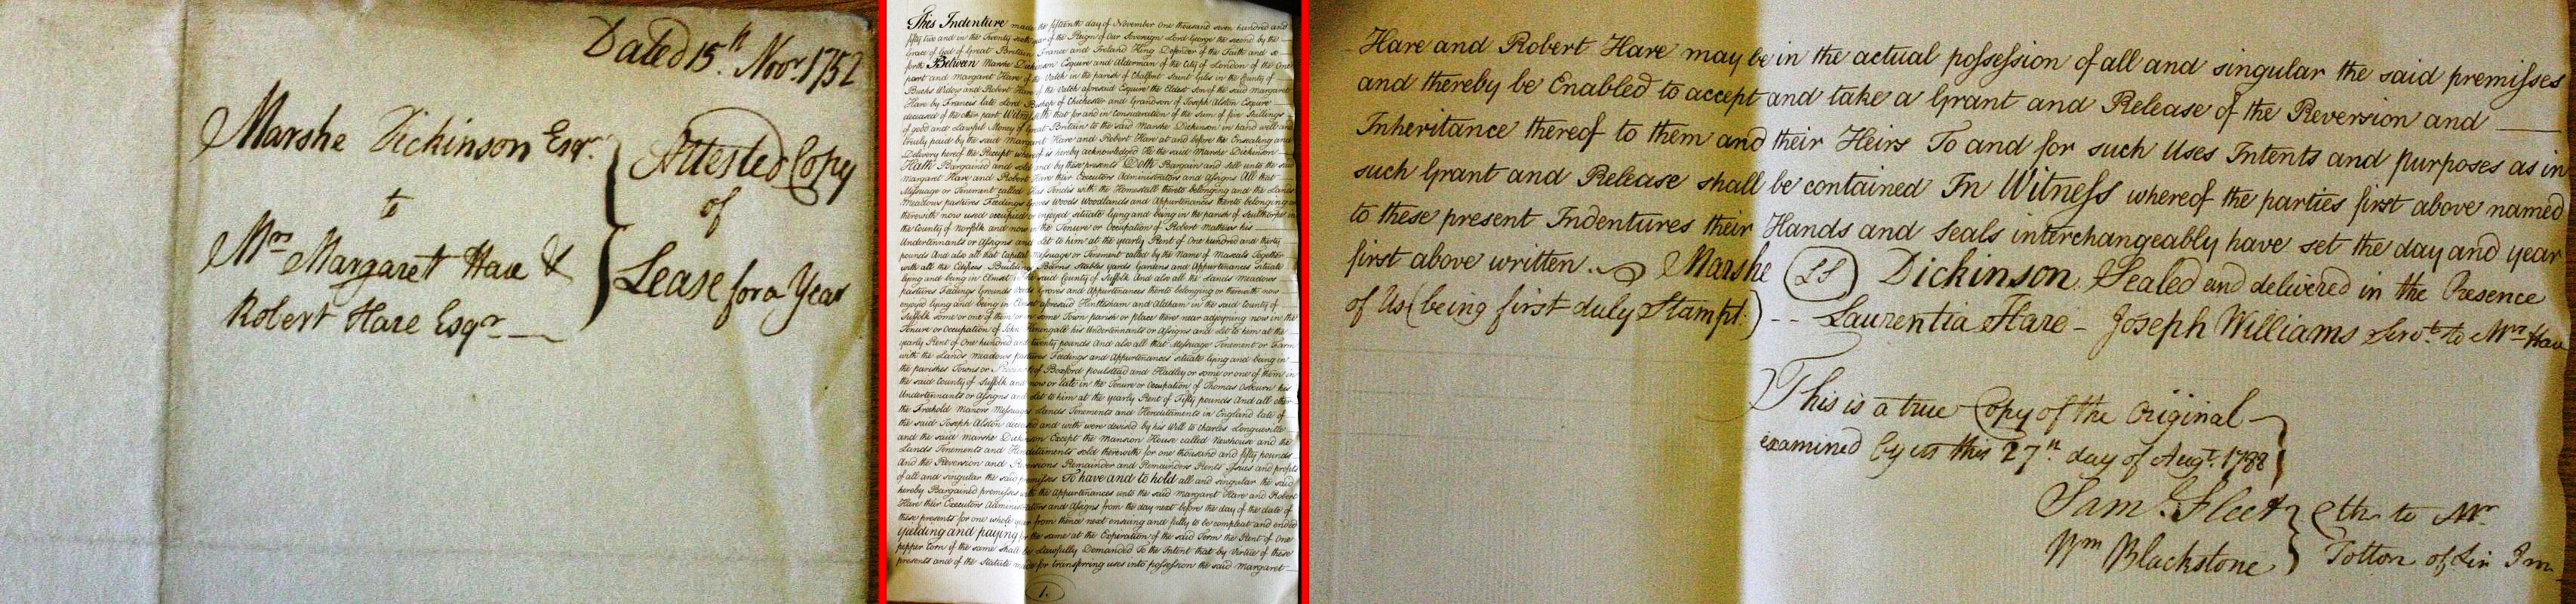 Dated 15.th Novr. 1752
Marshe Dickinson Esqr.
to
Mrs Margaret Hare &
Robert Hare Esqr
Attested Copy
of
Lease for a Year
This Indenture made the fifteenth day of November One thousand seven hundred and
fifty two and in the Twenty sixth year of the Reign of Our Sovereign Lord George the second by the
Grace of God of Great Britain France and Ireland King Defender of the Faith and so
forth Between Marshe Dickinson Esquire and Alderman of the City of London of the One
part and Margaret Hare of the Vatch in the parish of Chalfont Saint Giles in the County of
Bucks Widow and Robert Hare of the Vatch aforesaid Esquire the Eldest son of the said Margaret
Hare by Francis late Lord Bishop of Chichester and Grandson of Joseph Alston Esquire
deceased of the other part Witnesseth that for and in Consideration of the Sum of five Shillings
of good and Lawful Money of Great Britain to the said Marshe Dickinson in hand well and
truly paid by the said Margaret Hare and Robert Hare at and before the Ensealing and
Delivery hereof the Receipt whereof is hereby acknowledged He the said Marshe Dickinson
Hath Bargained and sold and by these presents Doth Bargain and sell unto the said
Margaret Hare and Robert Hare their Executors Administrators and Assigns All that
Messuage or Tenement called with the Homestall thereto belonging and the Lands
Meadows pastures Feedings Groves Woods Woodlands and Appurtenances thereto belonging or
therewith now used occupied or enjoyed situate lying and being in the parish of Sculthorpe in
the County of Norfolk and now in the Tenure or Occupation of Robert Mathews his
Undertennants or Assigns and let to him at the yearly Rent of One hundred and thirty
pounds And also all that Capital Messuage or Tenement called by the Name of Mascals Together
with all the Edifices Buildings Barns Stables yards Gardens and Appurtenances situate
lying and being in in the said County of Suffolk And also all the Lands Meadows
pastures Feedings Grounds Woods Groves and Appurtenances thereto belonging or therewith now
enjoyed lying and being in aforesaid Hintlesham and Aldham in the said County of
Suffolk some or one of them or in some Town parish or place there near adjoyning now in the
Tenure or Occupation of John his Undertennants or Assigns and let to him at the
yearly Rent of One hundred and twenty pounds And also all that Messuage Tenement or Farm
with the Lands meadows pastures Feedings and Appurtenances situate lying and being in
the parishes Towns or of Boxford poulstead and Hadley or some or one of them in
the said County of Suffolk and now or late in the Tenure or Occupation of Thomas Osbourn his
Undertennants or Assigns and let to him at the yearly Rent of Fifty pounds And all other
the Freehold Manors Messuages Lands Tenements and Hereditaments in England late of
the said Joseph Alston deceased and with were devised by his Will to Charles Longueville
and the said Marshe Dickinson Except the Mansion House called Newhouse and the
Lands Tenements and Hereditaments sold therewith for one thousand and fifty pounds
And the Reversion and Reversions Remainder and Remainders Rents Issues and profits
of all and singular the said premisses To have and to hold all and singular the said
hereby Bargained premisses with the Appurtenances unto the said Margaret Hare and Robert
Hare their Executors Administrators and Assigns from the day next before the day of the date of
these presents for one whole year from thence next ensuing and fully to be compleat and ended
yielding and paying for the same at the Expiration of the said Term the Rent of One
pepper Corn if the same shall be Lawfully Demanded To the Intent that by Virtue of these
presents and of the Statute made for transferring uses into possession the said Margaret
1.
Hare and Robert Hare may be in the actual possession of all and singular the said premisses
and thereby be Enabled to accept and take a Grant and Release of the Reversion and
Inheritance thereof to them and their Heirs To and for such Uses Intents and purposes as in
such Grant and Release shall be contained In Witness whereof the parties first above named
to these present Indentures their Hands and Seals interchangeably have set the day and year
first above written. Marshe (LS) Dickinson. Sealed and delivered in the Presence
of Us (being first duly Stampt.) -- Laurentia Hare - Joseph Williams Servt. to Mrs Hare
This is a true Copy of the Original
examined by us this 27th day of Augt. 1788
Saml. Fleet
Wm Blackstone
Clks to Mr
Totton of Lin Inn